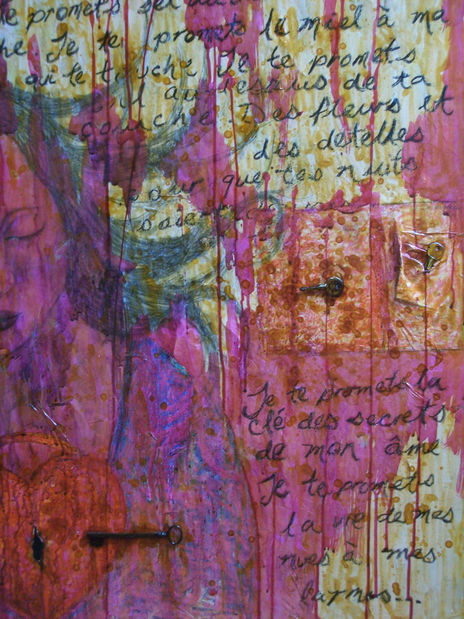 te promets
promets le miel à ma
he Je te promets
qui te touche Je te promets
au dessus de ta
couche Des fleurs et
des detelles
pour que tes nuits
soient
Je te promets la
clé des secrets
de mon âme
Je te promets
la vie de mes
rires à mes
larmes...